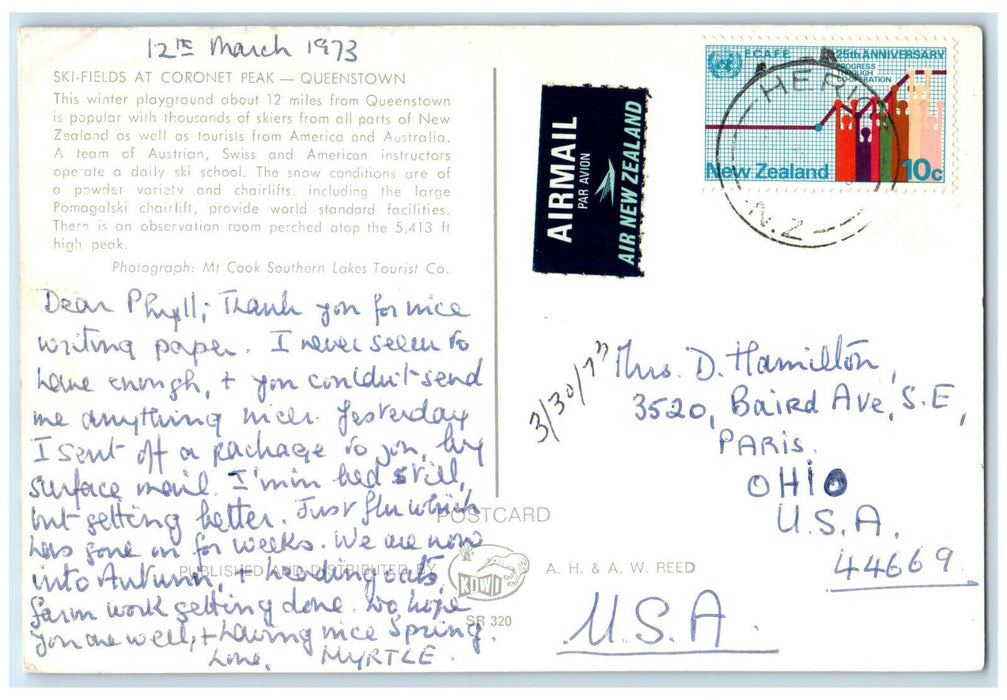 12TH March 1973
SKI-FIELDS AT CORONET PEAK — QUEENSTOWN
This winter playground about 12 miles from Queenstown
is popular with thousands of skiers from all parts of New
Zealand as well as tourists from America and Australia.
A team of Austrian, Swiss and American instructors
operate a daily ski school. The snow conditions are of
a powder variety and chairlifts, including the large
Pomagalski chairlift, provide world standard facilities.
There is an observation room perched atop the 5,413 ft
high peak.
Photograph: Mt Cook Southern Lakes Tourist Co.
Dear Phyll; Thank you for nice
writing paper. I never seem to
have enough, + you couldn't send
me anything nicer. Yesterday
I sent off a package to you, by
surface mail. I'm in bed still,
but getting better. Just flu which
has gone on for weeks. We are now
into Autumn, + heading
farm work getting done. Do hope
you are well, + having nice Spring.
Love, MYRTLE.
AIRMAIL
PAR AVION
AIR NEW ZEALAND
E.C.A.F.E. 25th ANNIVERSARY
PROGRESS
THROUGH
CO-OPERATION
New Zealand 10c
N.Z
3/30/73
Mrs. D. Hamilton,
3520, Baird Ave, S.E,
PARIS.
OHIO
U.S.A.
44669.
U.S.A.
POSTCARD
PUBLISHED AND DISTRIBUTED BY KIWI A. H. & A. W. REED
SR 320